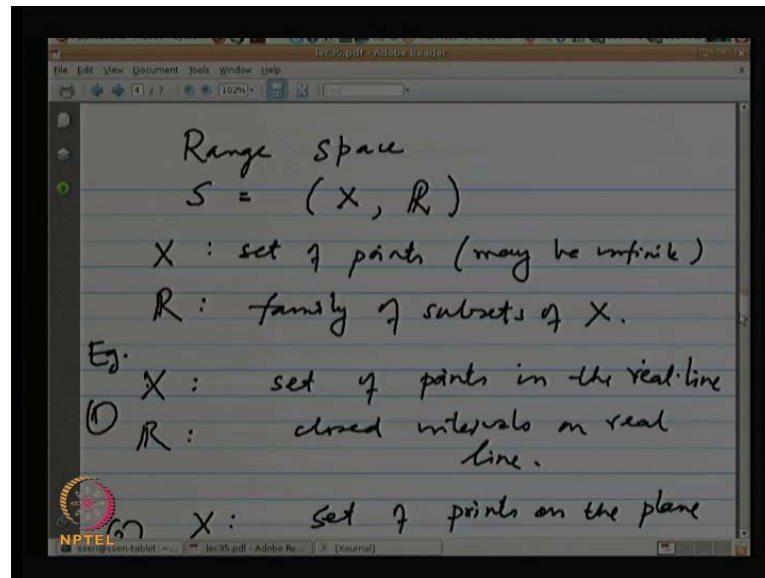 lec35.pdf - Adobe Reader
File Edit View Document Tools Window Help
4 / 7 102%
Range space
S = (X, R)
X : set of points (may be infinite)
R : family of subsets of X.
Eg.
(1) X : set of points in the real line
R : closed intervals on real
line.
X : set of points on the plane
NPTEL
ssen@ssen-tablet: ~... lec35.pdf - Adobe Re... (Xournal)